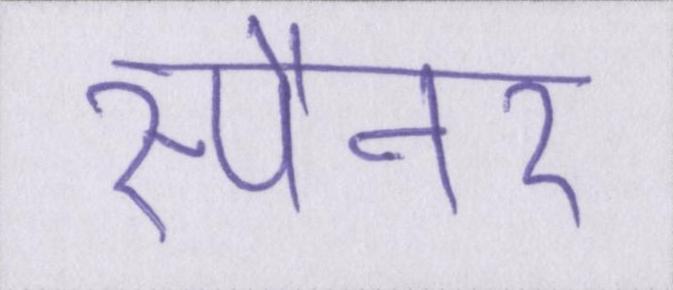 स्पैनर